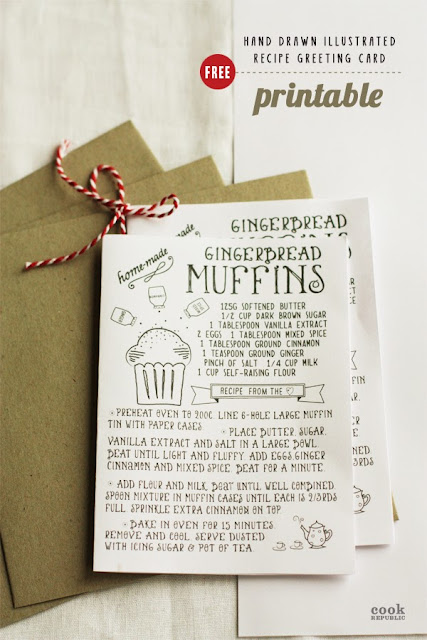 HAND DRAWN ILLUSTRATED
RECIPE GREETING CARD
FREE
printable
GINGERBREAD
home-made
GINGERBREAD
MUFFINS
125G SOFTENED BUTTER
1/2 CUP DARK BROWN SUGAR
1 TABLESPOON VANILLA EXTRACT
2 EGGS 1 TABLESPOON MIXED SPICE
1 TABLESPOON GROUND CINNAMON
1 TEASPOON GROUND GINGER
PINCH OF SALT 1/4 CUP MILK
1 CUP SELF-RAISING FLOUR
RECIPE FROM THE ♡
PREHEAT OVEN TO 200C. LINE 6-HOLE LARGE MUFFIN
TIN WITH PAPER CASES.
PLACE BUTTER, SUGAR,
VANILLA EXTRACT AND SALT IN A LARGE BOWL.
BEAT UNTIL LIGHT AND FLUFFY. ADD EGGS, GINGER
CINNAMON AND MIXED SPICE. BEAT FOR A MINUTE.
ADD FLOUR AND MILK, BEAT UNTIL WELL COMBINED.
SPOON MIXTURE IN MUFFIN CASES UNTIL EACH IS 2/3RDS
FULL. SPRINKLE EXTRA CINNAMON ON TOP.
BAKE IN OVEN FOR 15 MINUTES.
REMOVE AND COOL. SERVE DUSTED
WITH ICING SUGAR & POT OF TEA.
cook
REPUBLIC